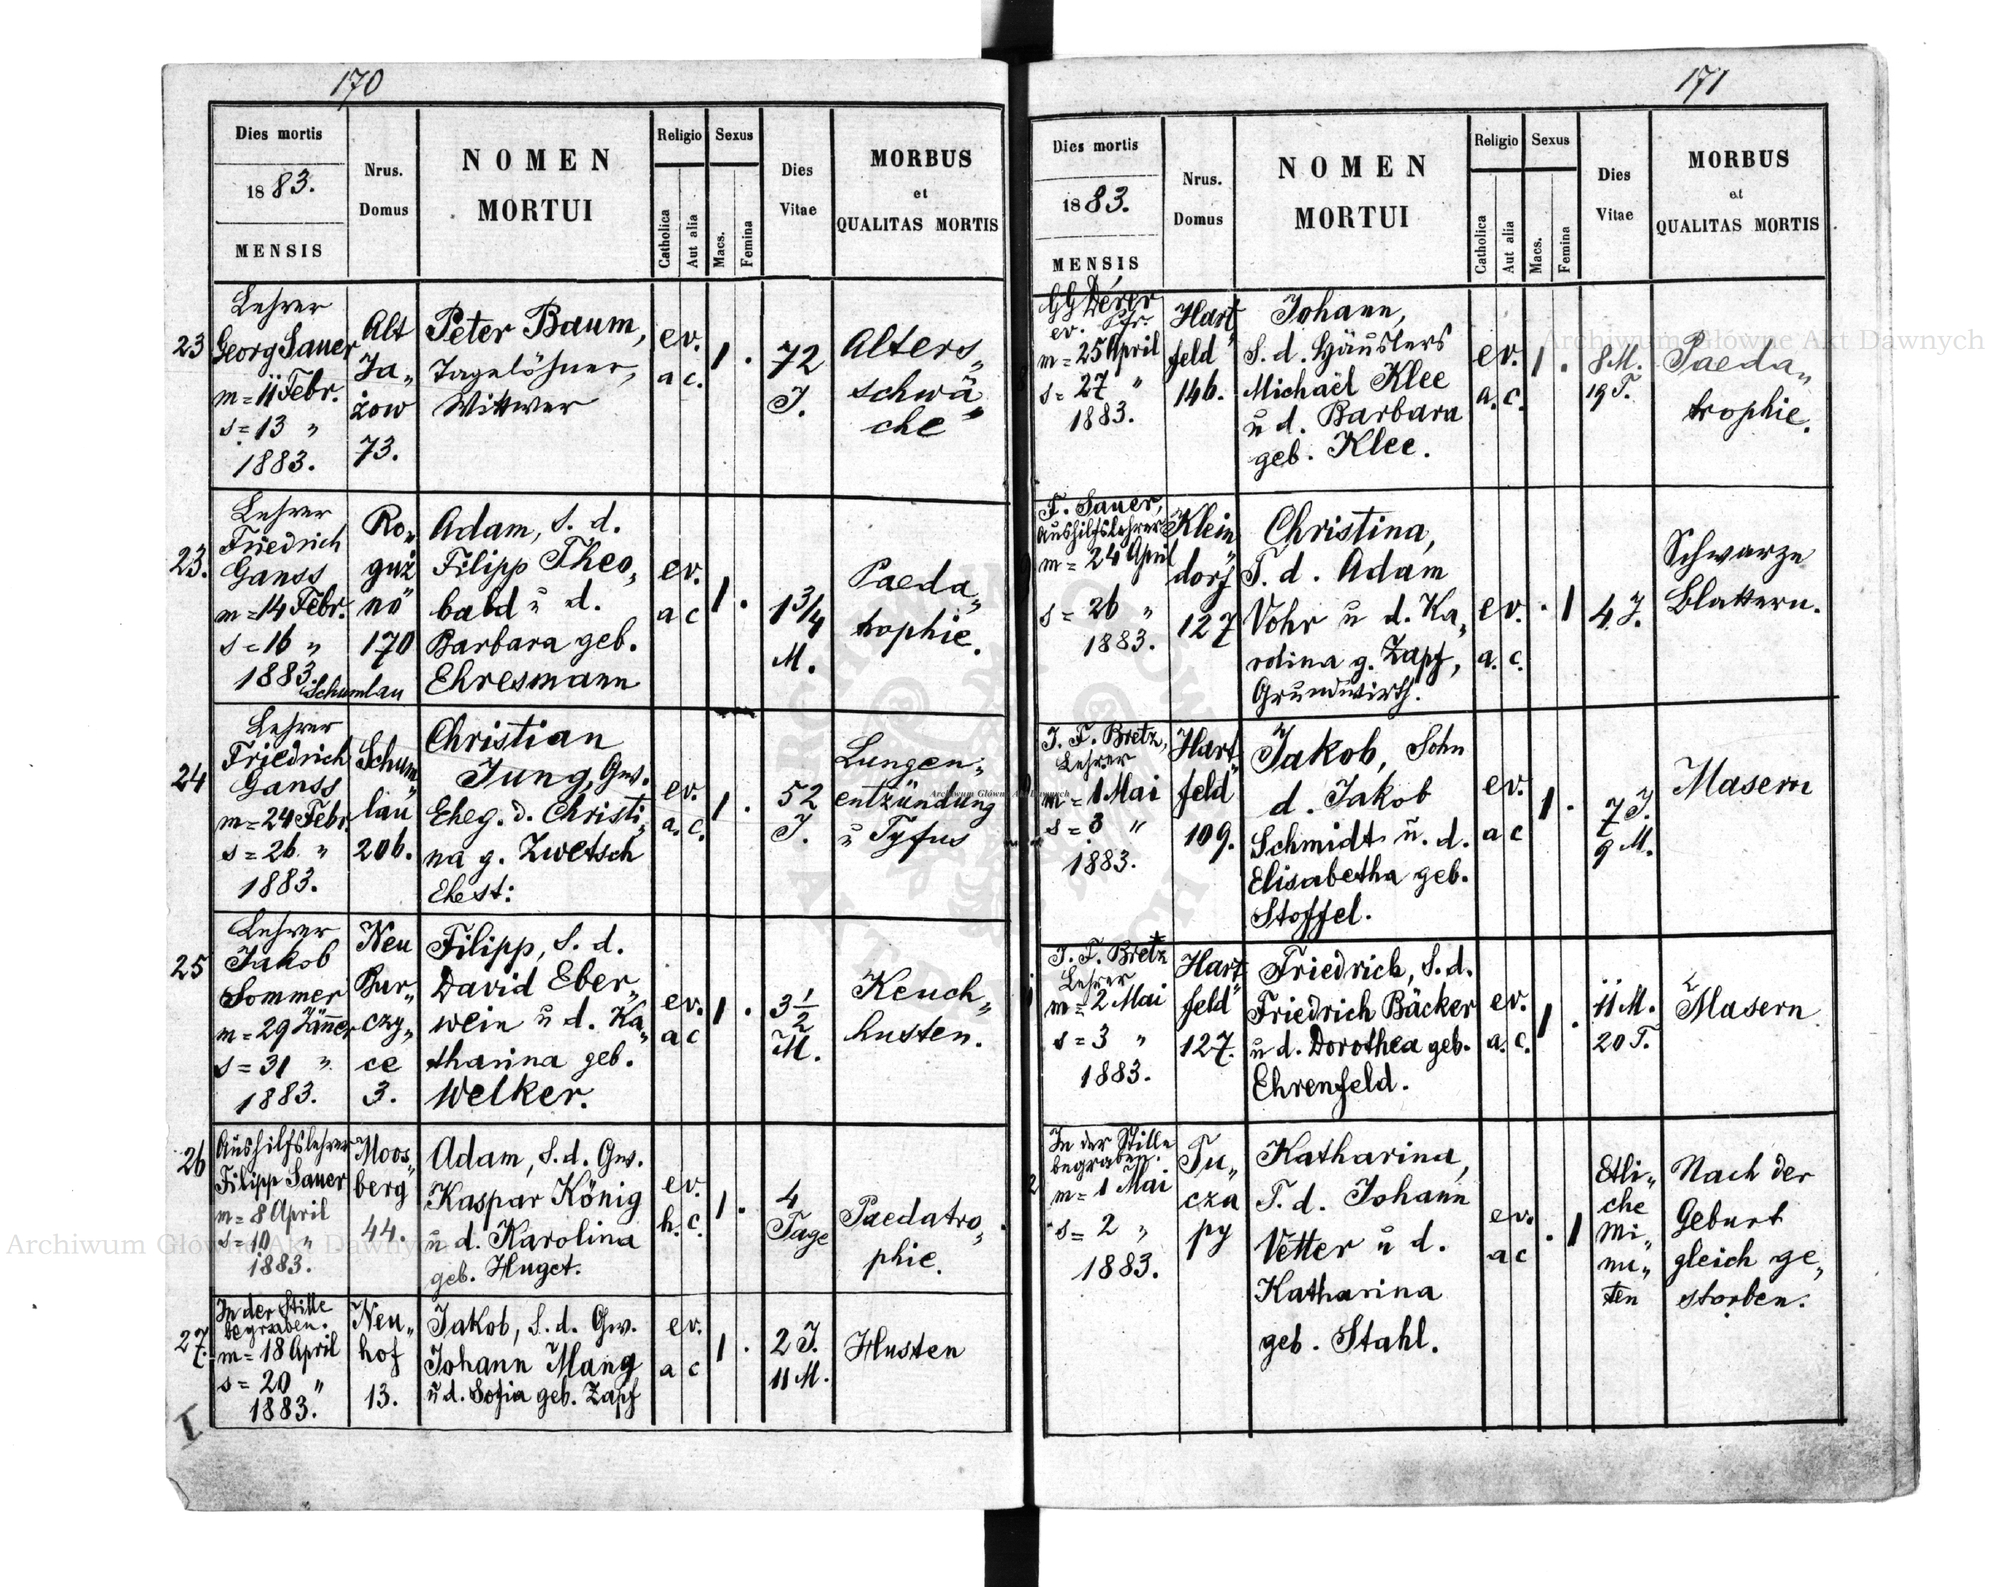 170
Dies mortis
1883.
MENSIS
Nrus.
Domus
NOMEN
MORTUI
Religio
Catholica
Aut alia
Sexus
Macs.
Femina
Dies
Vitae
MORBUS
et
QUALITAS MORTIS
23
Lehrer
Georg Sauer
m = 11 Febr.
s = 13 "
1883.
Alt
Ja„
żow
73.
Peter Baum,
Tagelöhner,
Wittwer
ev.
a c.
1 .
72
J.
Alters„
schwä„
che
23.
Lehrer
Friedrich
Ganss
m = 14 Febr.
s = 16 "
1883.
Schumlau
Ro„
guź
no
170
Adam, S. d.
Filipp Theo„
bald u d.
Barbara geb.
Ehresmann
ev.
a c
1 .
1 3/4
M.
Paeda„
trophie.
24
Lehrer
Friedrich
Ganss
m = 24 Febr.
s = 26 "
1883.
Schum„
lau
206.
Christian
Jung, Gw.
Eheg. d. Christi„
na g. Zwetsch
Ehest:
ev.
a. c.
1 .
52
J.
Lungen„
entzündung
u Tyfus
25
Lehrer
Jakob
Sommer
m = 29 Jänner
s = 31 "
1883.
Neu
Bur„
czy„
ce
3.
Filipp, S. d.
David Eber„
wein u d. Ka„
tharina geb.
Welker.
ev.
a c
1 .
3 1/2
M.
Keuch„
husten.
26
Aushilfslehrer
Filipp Sauer
m = 8 April
s = 10 "
1883.
Moos„
berg
44.
Adam, S. d. Gw.
Kaspar König
u d. Karolina
geb. Huget.
ev.
h. c.
1 .
4
Tage
Paedatro„
phie.
27.
In der Stille
begraben.
m = 18 April
s = 20 "
1883.
Neu„
hof
13.
Jakob, S. d. Gw.
Johann Mang
u d. Sofia geb. Zapf
ev.
a c
1 .
2 J.
11 M.
Husten
171
Dies mortis
1883.
MENSIS
Nrus.
Domus
NOMEN
MORTUI
Religio
Catholica
Aut alia
Sexus
Macs.
Femina
Dies
Vitae
MORBUS
et
QUALITAS MORTIS
ev. Pfr.
m = 25 April
s = 27 "
1883.
Hart„
feld
146.
Johann,
S. d. Häuslers
Michaël Klee
u d. Barbara
geb. Klee.
ev.
a. c.
1 .
8 M.
19 T.
Paeda„
trophie.
F. Sauer,
Aushilfslehrer
m = 24 April
s = 26 "
1883.
Klein„
dorf
127
Christina,
T. d. Adam
Vohr u d. Ka„
rolina g. Zapf,
Grundwirth.
ev.
a. c.
. 1
4 J.
Schwarze
Blattern.
J. F. Bretz,
Lehrer
m = 1 Mai
s = 3 "
1883.
Hart„
feld
109.
Jakob, Sohn
d. Jakob
Schmidt u. d.
Elisabetha geb.
Stoffel.
ev.
a c
1 .
7 J.
9 M.
Masern
J. F. Bretz
Lehrer
m = 2 Mai
s = 3 "
1883.
Hart„
feld
127.
Friedrich, S. d.
Friedrich Bäcker
u d. Dorothea geb.
Ehrenfeld.
ev.
a. c.
1 .
11 M.
20 T.
Masern
In der Stille
begraben.
m = 1 Mai
s = 2 "
1883.
Tu„
cza
py
Katharina,
T. d. Johann
Vetter u d.
Katharina
geb. Stahl.
ev.
a c
. 1
Etli„
che
Mi„
nu„
ten
Nach der
Geburt
gleich ge„
storben.
Archiwum Główne Akt Dawnych
Archiwum Główne Akt Dawnych
Archiwum Główne Akt Dawnych